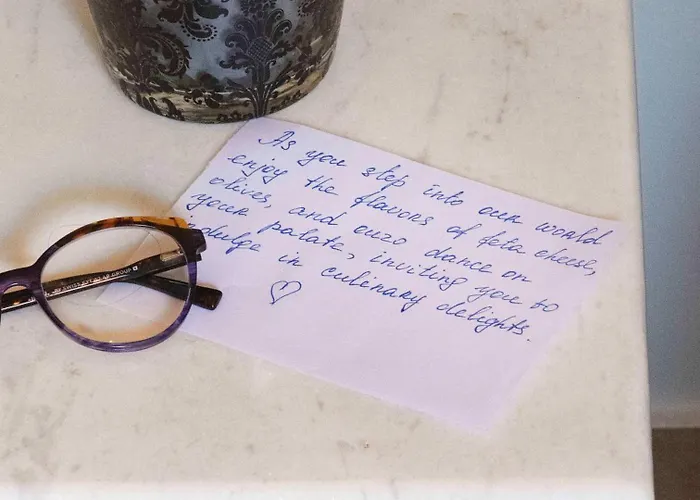 As you step into our world
enjoy the flavors of feta cheese,
olives, and ouzo dance on
your palate, inviting you to
indulge in culinary delights.
♡